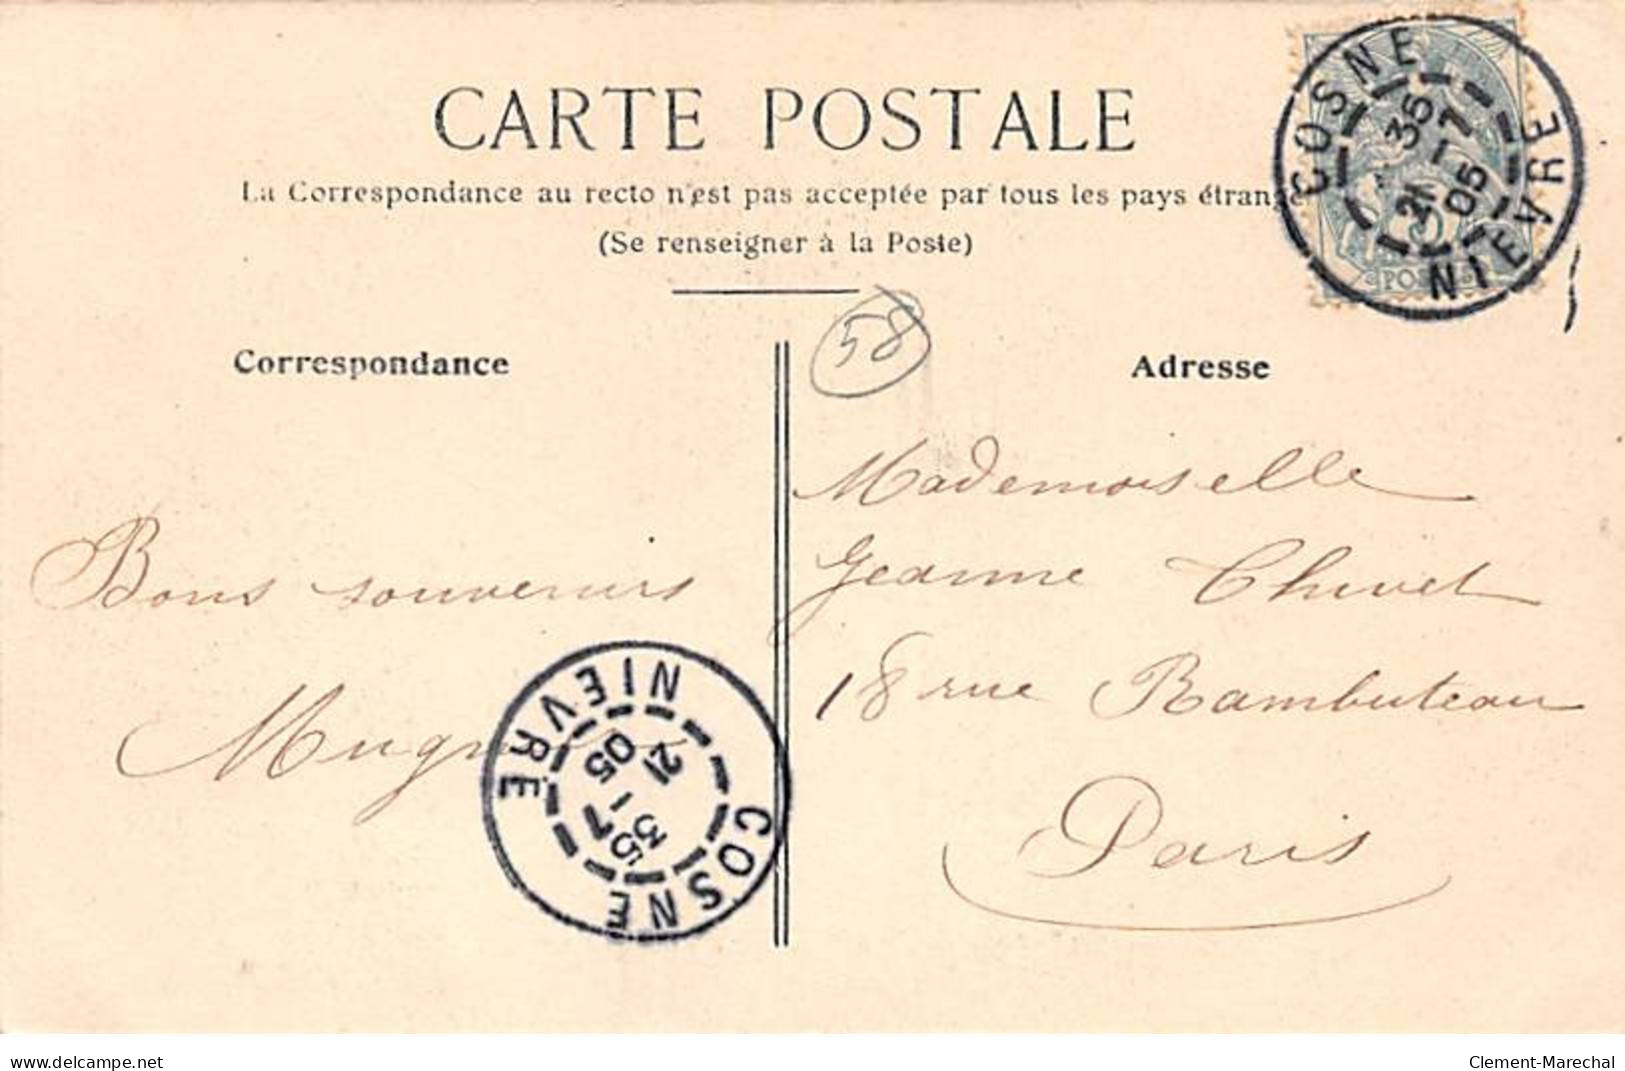 CARTE POSTALE
La Correspondance au recto n'est pas acceptée par tous les pays étrange
(Se renseigner à la Poste)
COSNE
NIEVRE
21 - 7
05
58
Correspondance
Adresse
Mademoiselle
Jeanne Chivet
18 rue Rambuteau
Paris
Bons souvenirs
COSNE
NIEVRE
21 - 7
05
delcampe.net
Clement-Marechal